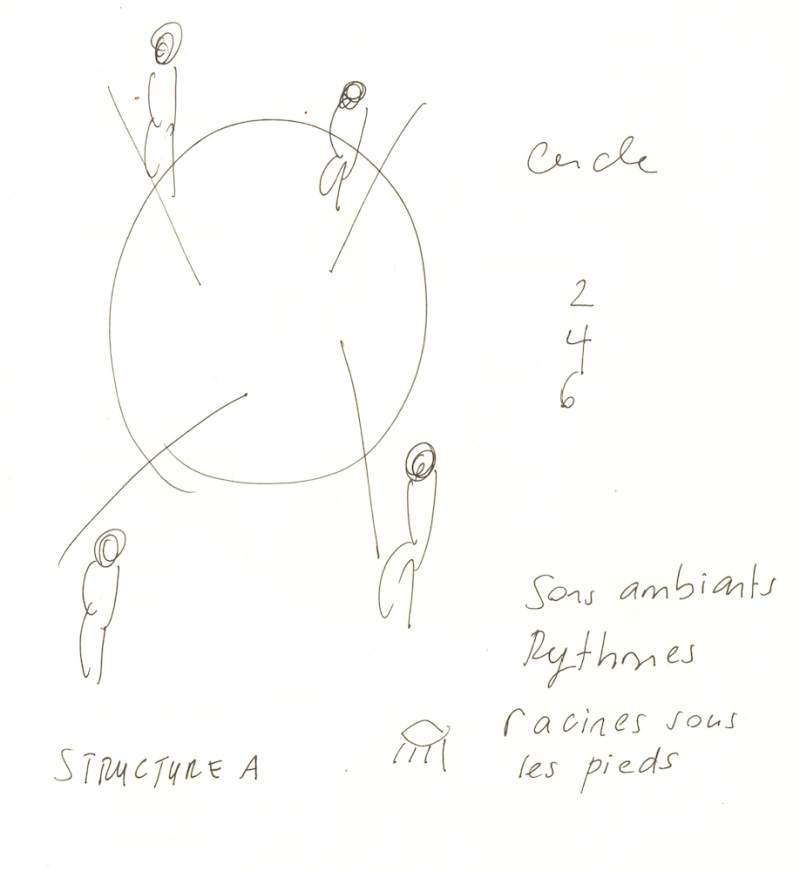 Cercle
2
4
6
Sons ambiants
Rythmes
racines sous
les pieds
STRUCTURE A